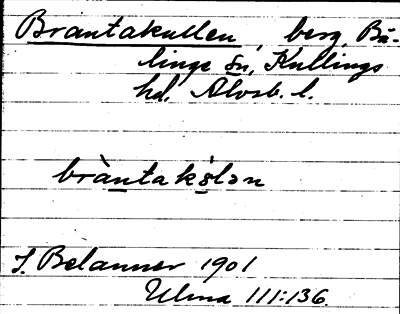 Brantakullen, berg, Bä-
linge sn, Kullings
hd, Älvsb. l.
bràntakṡlən
J. Belanner 1901
Ulma 111:136.